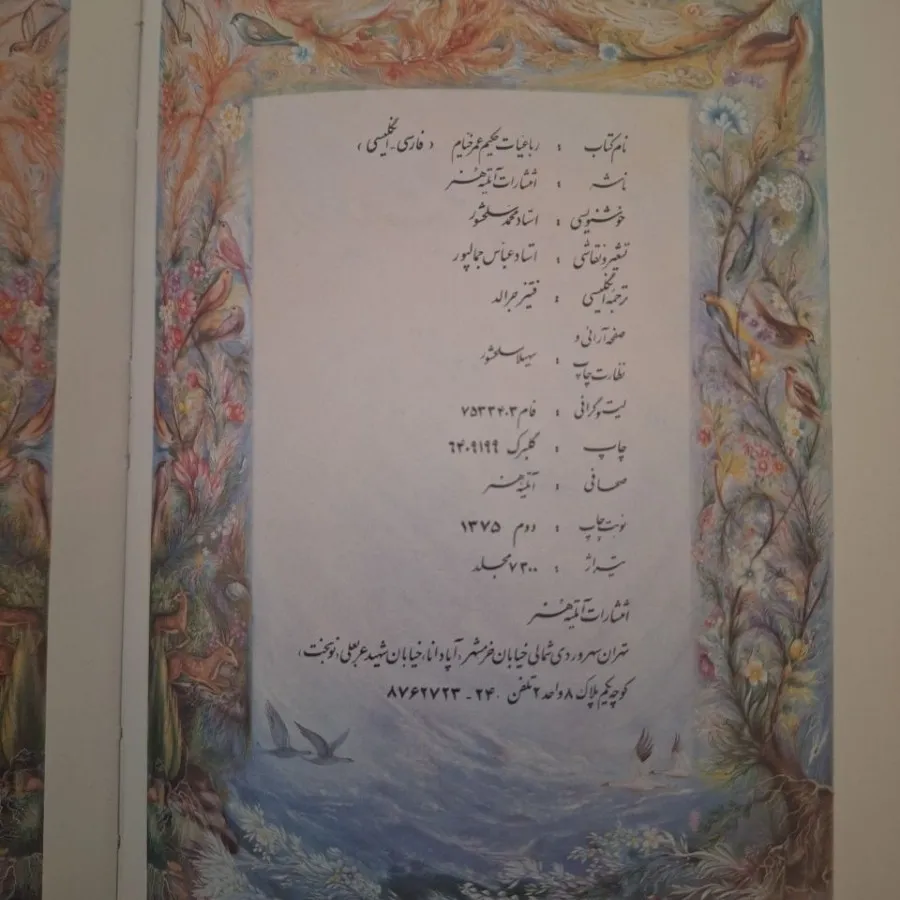 نام کتاب : رباعیات حکیم عمر خیام (فارسی-انگلیسی)
ناشر : انتشارات آتلیه هنر
خوشنویسی : استاد محمد سلحشور
تشعیر و نقاشی : استاد عباس جمالپور
ترجمه انگلیسی : فیتز جرالد
صفحه آرائی و
نظارت چاپ : سهیلا سلحشور
لیتوگرافی : فام ۷۵۳۳۴۰۳
چاپ : گلبرگ ۶۴۰۹۱۹۹
صحافی : آتلیه هنر
نوبت چاپ : دوم ۱۳۷۵
تیراژ : ۷۳۰۰ مجلد
انتشارات آتلیه هنر
تهران سهروردی شمالی خیابان خرمشهر (آپادانا) خیابان شهید عربعلی (نوبخت)
کوچه یکم پلاک ۸ واحد ۲ تلفن ۲۴۰ - ۸۷۶۲۷۲۳